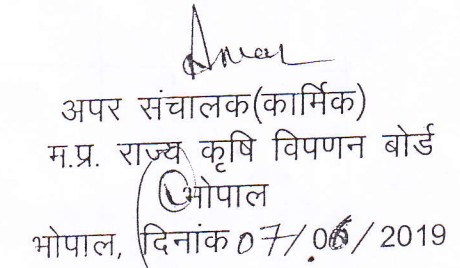 अपर संचालक(कार्मिक)
म.प्र. राज्य कृषि विपणन बोर्ड
भोपाल
भोपाल, दिनांक 07/06/2019